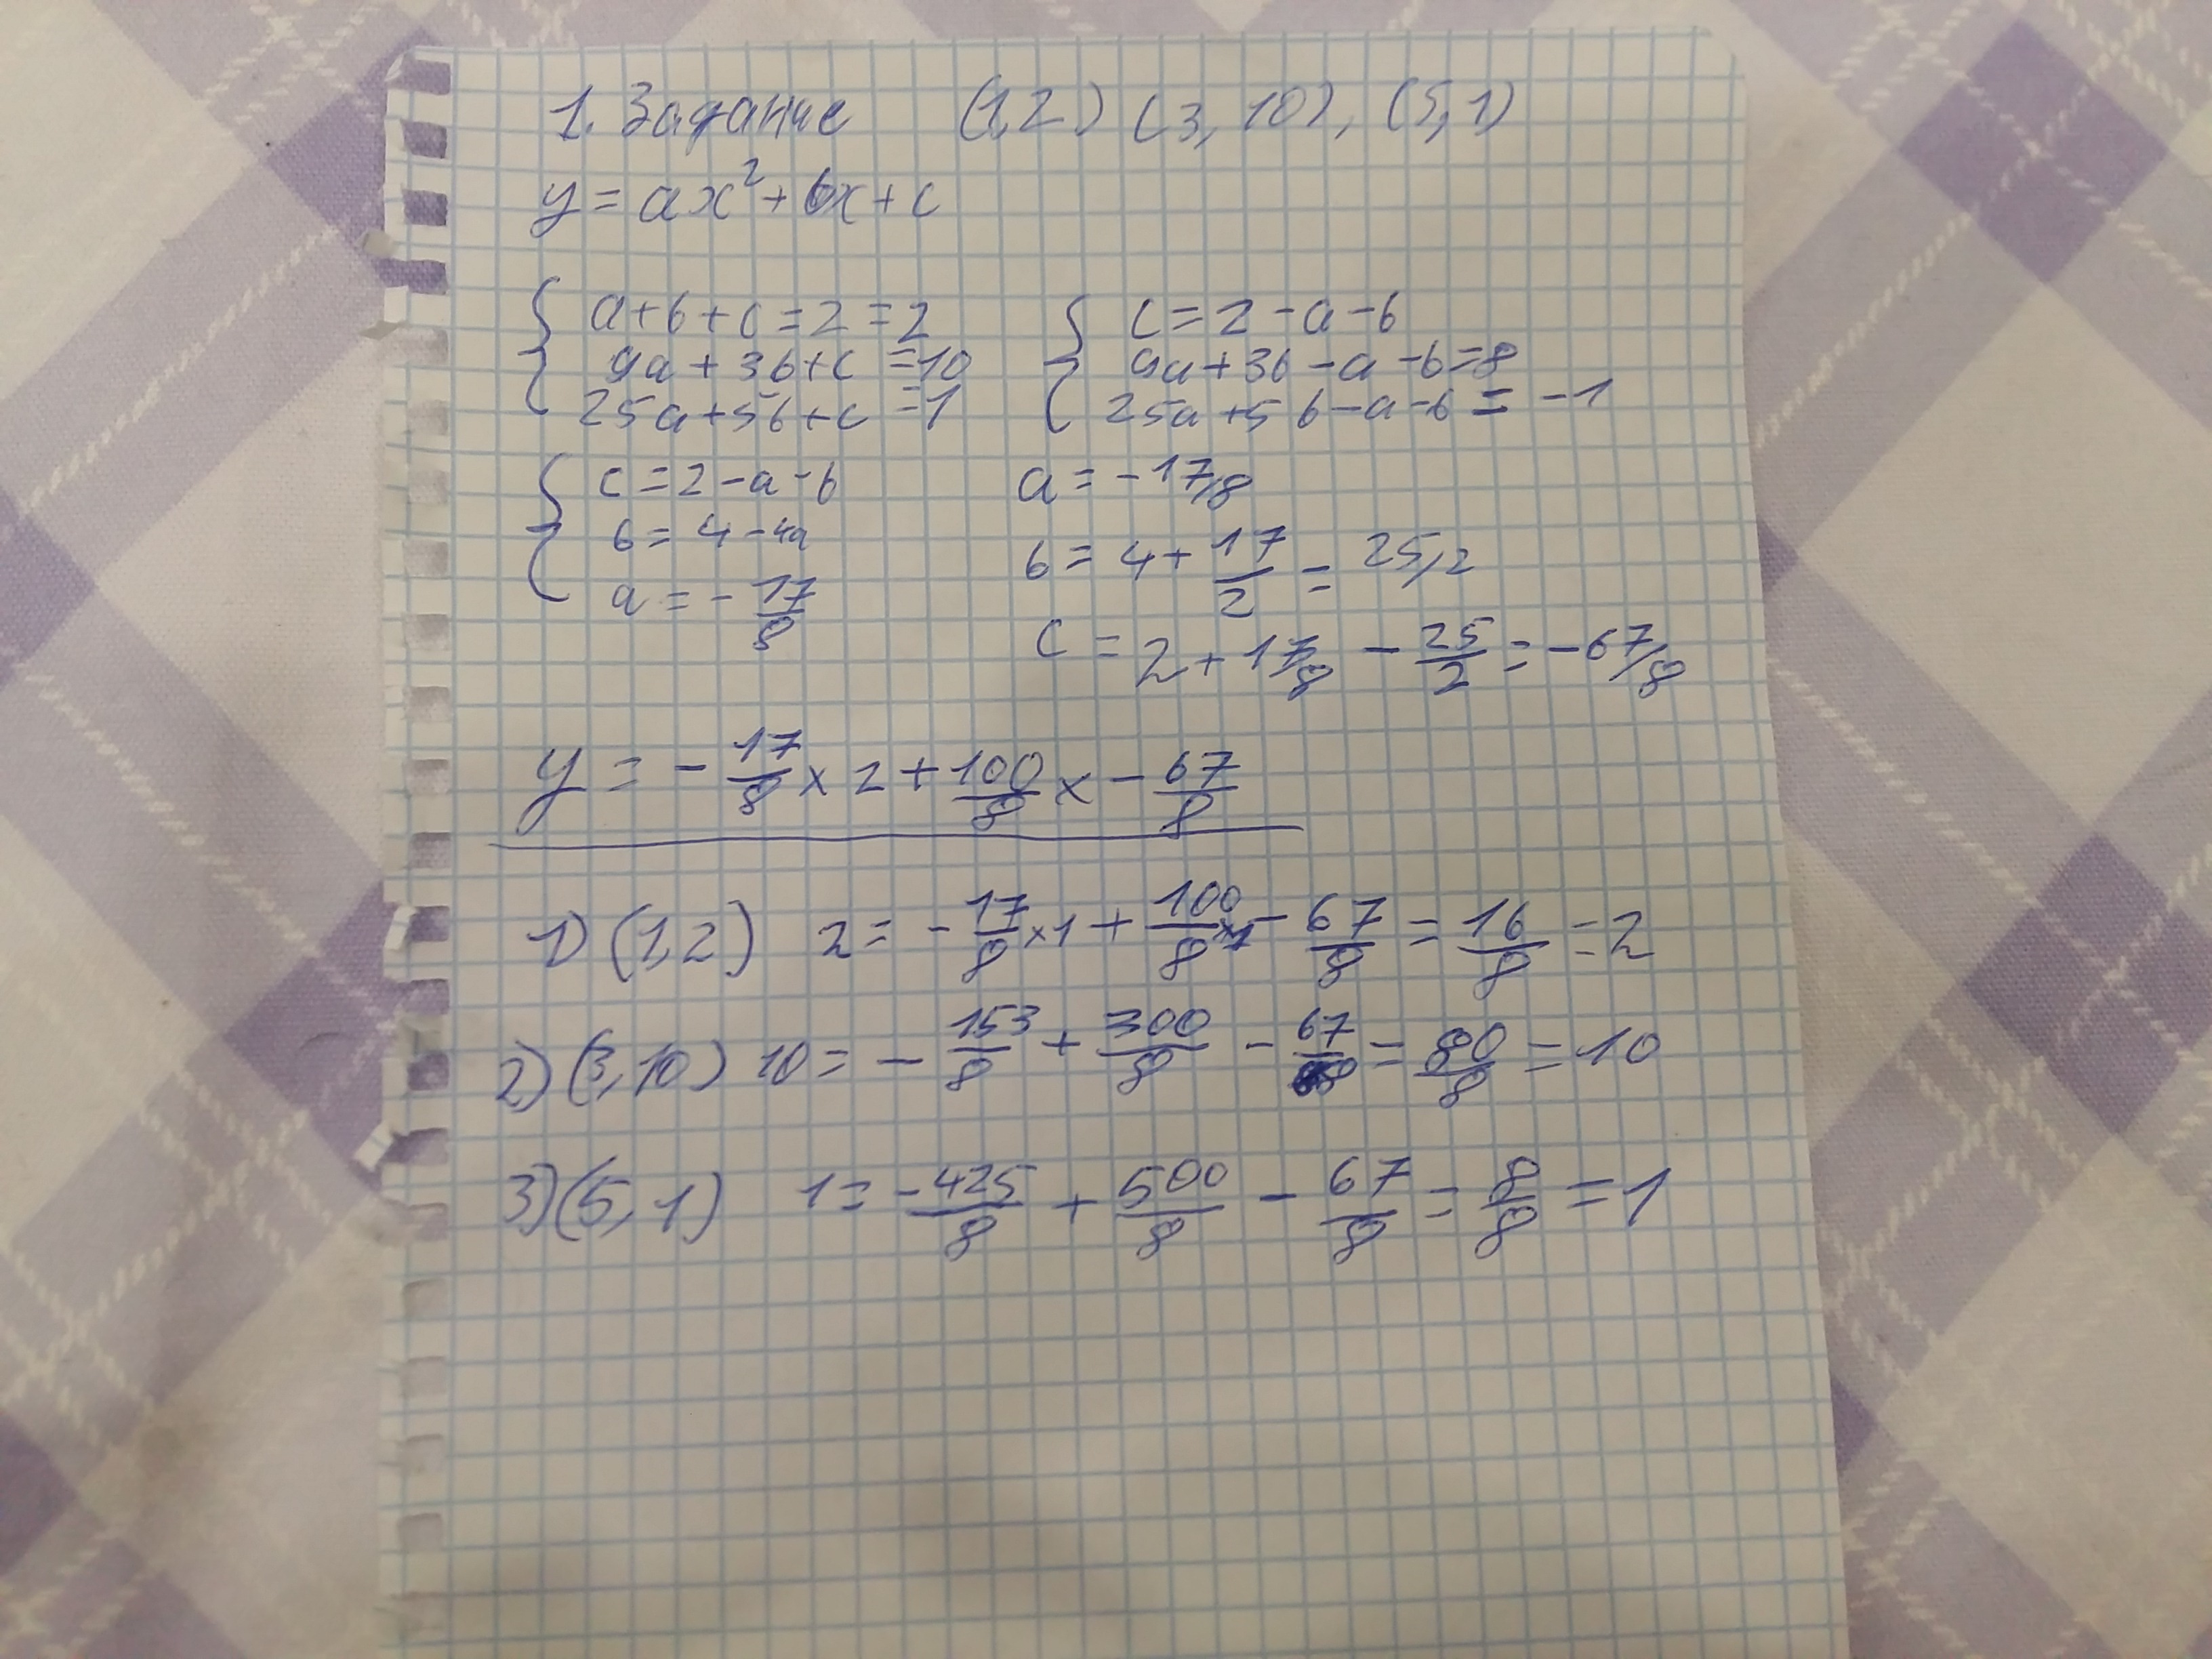 1. Задание (1,2) (3, 10), (5,1)
y = ax² + bx + c
a + b + c = 2 = 2
9a + 3b + c = 10
25a + 5b + c = 1
c = 2 - a - b
9a + 3b - a - b = 8
25a + 5b - a - b = -1
c = 2 - a - b
b = 4 - 4a
a = - 17/8
a = - 17/8
b = 4 + 17/2 = 25,2
c = 2 + 17/8 - 25/2 = - 67/8
y = - 17/8 x 2 + 100/8 x - 67/8
1) (1,2) 2 = - 17/8 x 1 + 100/8 x 1 - 67/8 = 16/8 = 2
2) (3, 10) 10 = - 153/8 + 300/8 - 67/8 = 80/8 = 10
3) (5, 1) 1 = - 425/8 + 500/8 - 67/8 = 8/8 = 1